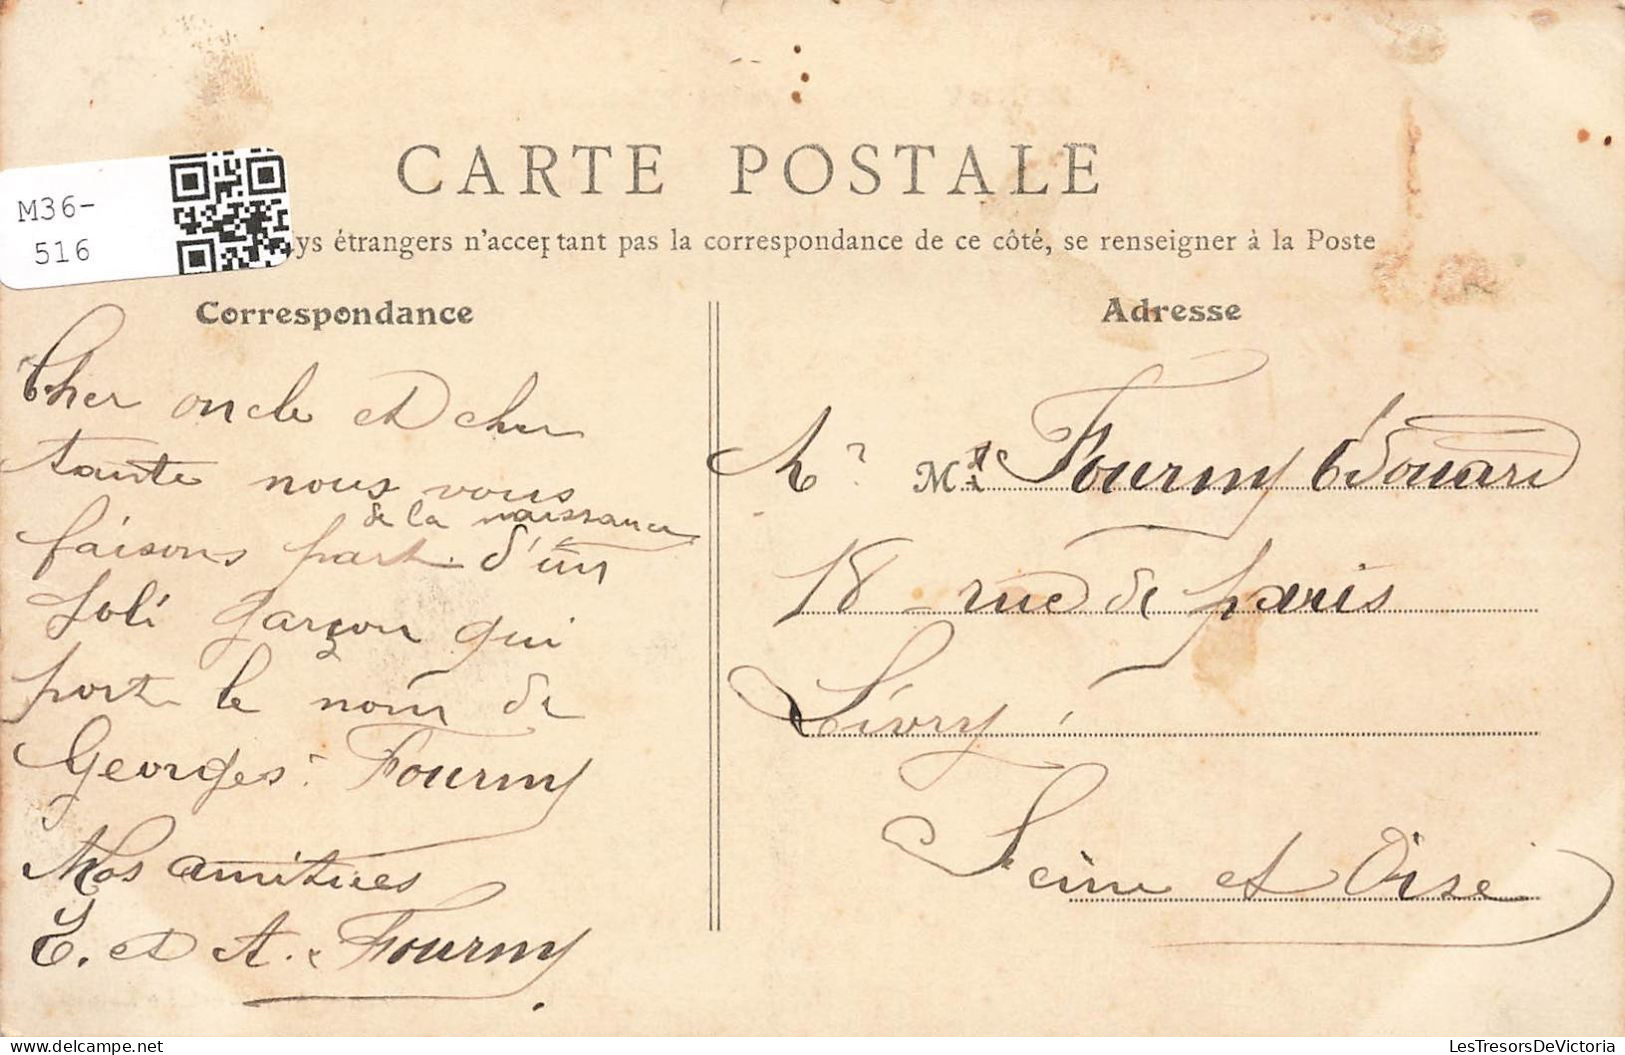 M36-
516
CARTE POSTALE
ys étrangers n'acceptant pas la correspondance de ce côté, se renseigner à la Poste
Correspondance
Cher oncle et cher
tante nous vous
de la naissance
faisons part d'un
Joli garçon qui
porte le nom de
Georges Fourny
Nos amitiées
E. et A. Fourny
Adresse
Mr Me Fourny Édouard
18 - rue de paris
Livry
Seine et Oise
LesTresorsDeVictoria